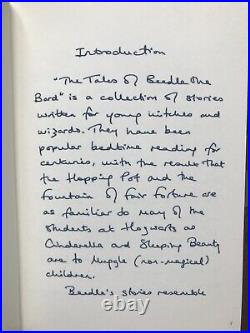 Introduction
"The Tales of Beedle the
Bard" is a collection of stories
written for young witches and
wizards. They have been
popular bedtime reading for
centuries, with the result that
the Hopping Pot and the
fountain of fair fortune are
as familiar to many of the
students at Hogwarts as
Cinderella and Sleeping Beauty
are to Muggle (non-magical)
children.
Beedle's stories resemble